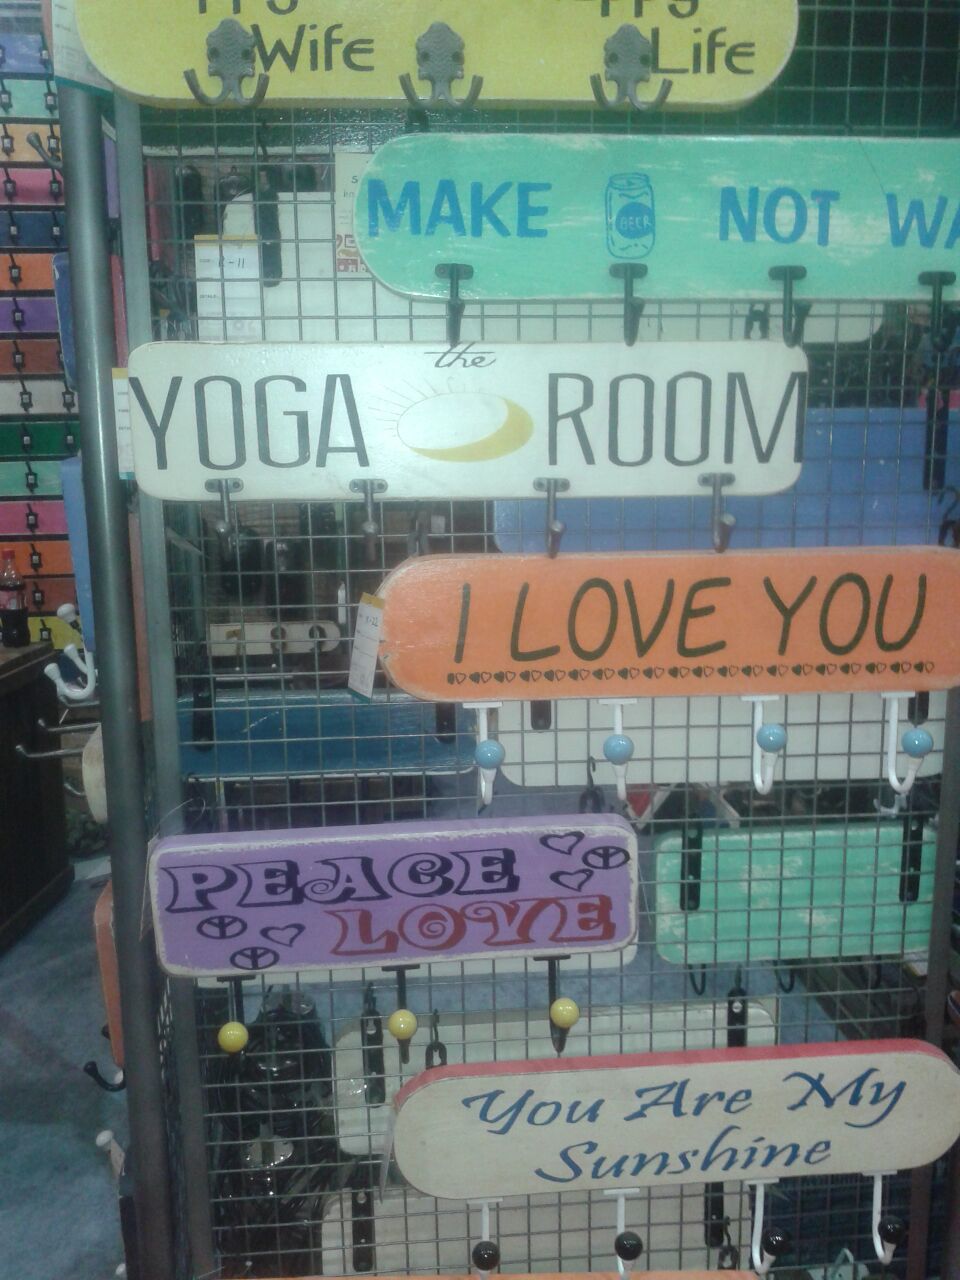 Wife Life
MAKE BEER NOT
the
YOGA ROOM
K-11
I LOVE YOU
K-22
PEACE
LOVE
You Are My
Sunshine